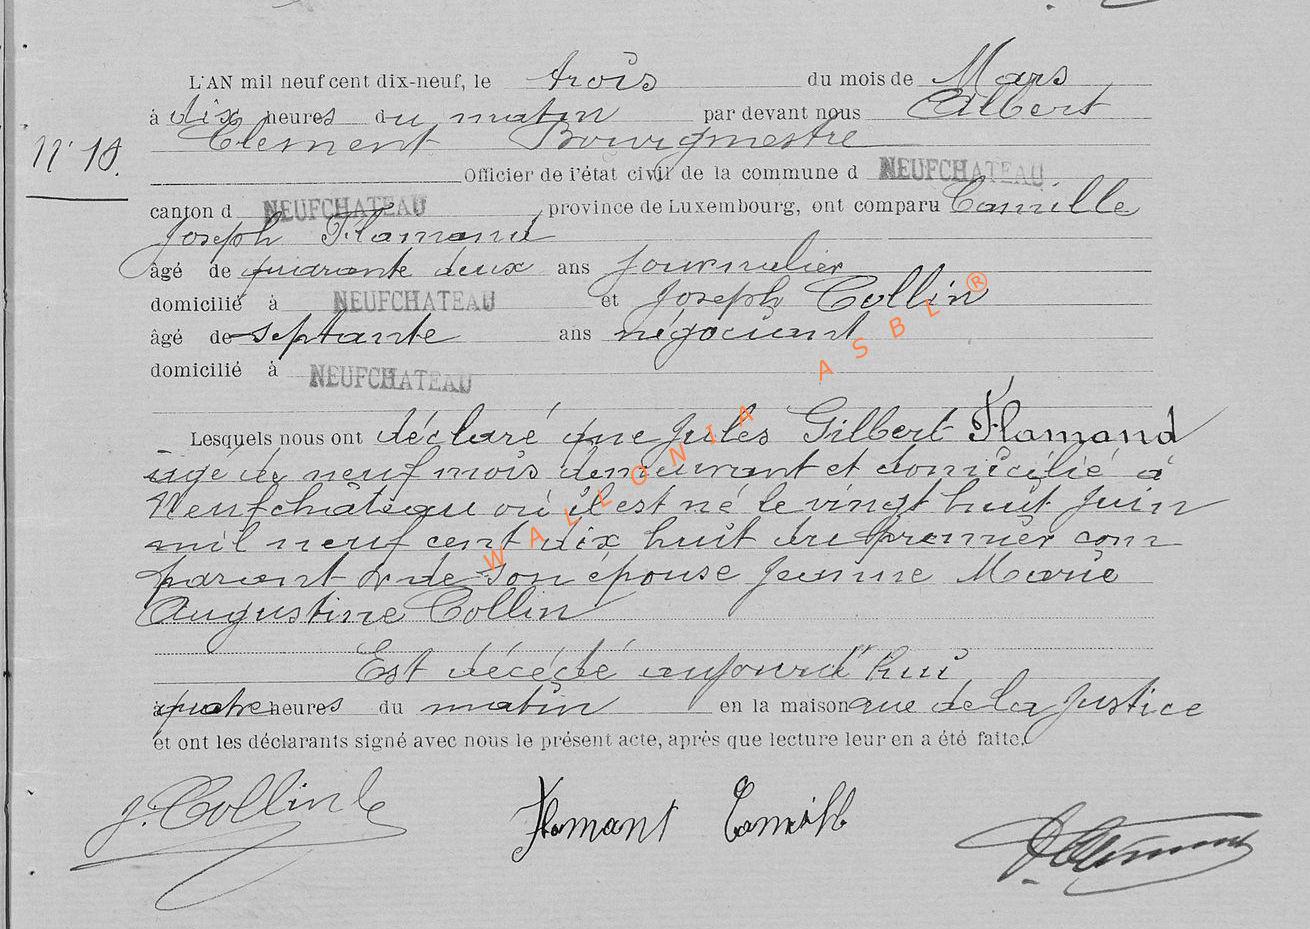 L'AN mil neuf cent dix-neuf, le trois du mois de Mars
à dix heures du matin par devant nous Albert
N° 18. Clement Bourgmestre
Officier de l'état civil de la commune d NEUFCHATEAU
canton d NEUFCHATEAU, province de Luxembourg, ont comparu Camille
Joseph Flamand
âgé de quarante deux ans journalier
domicilié à NEUFCHATEAU et Joseph Collin
âgé de septante ans négociant
domicilié à NEUFCHATEAU
Lesquels nous ont déclaré que Jules Gilbert Flamand
âgé de neuf mois demeurant et domicilié à
Neufchâteau où il est né le vingt huit juin
mil neuf cent dix huit du premier com
parant & de son épouse Jeanne Marie
Augustine Collin
Est décédé aujourd'hui
à quatre heures du matin en la maison rue de la Justice
et ont les déclarants signé avec nous le présent acte, après que lecture leur en a été faite.
J. Collin Flamant Camille
WALLONIA ASBL ®